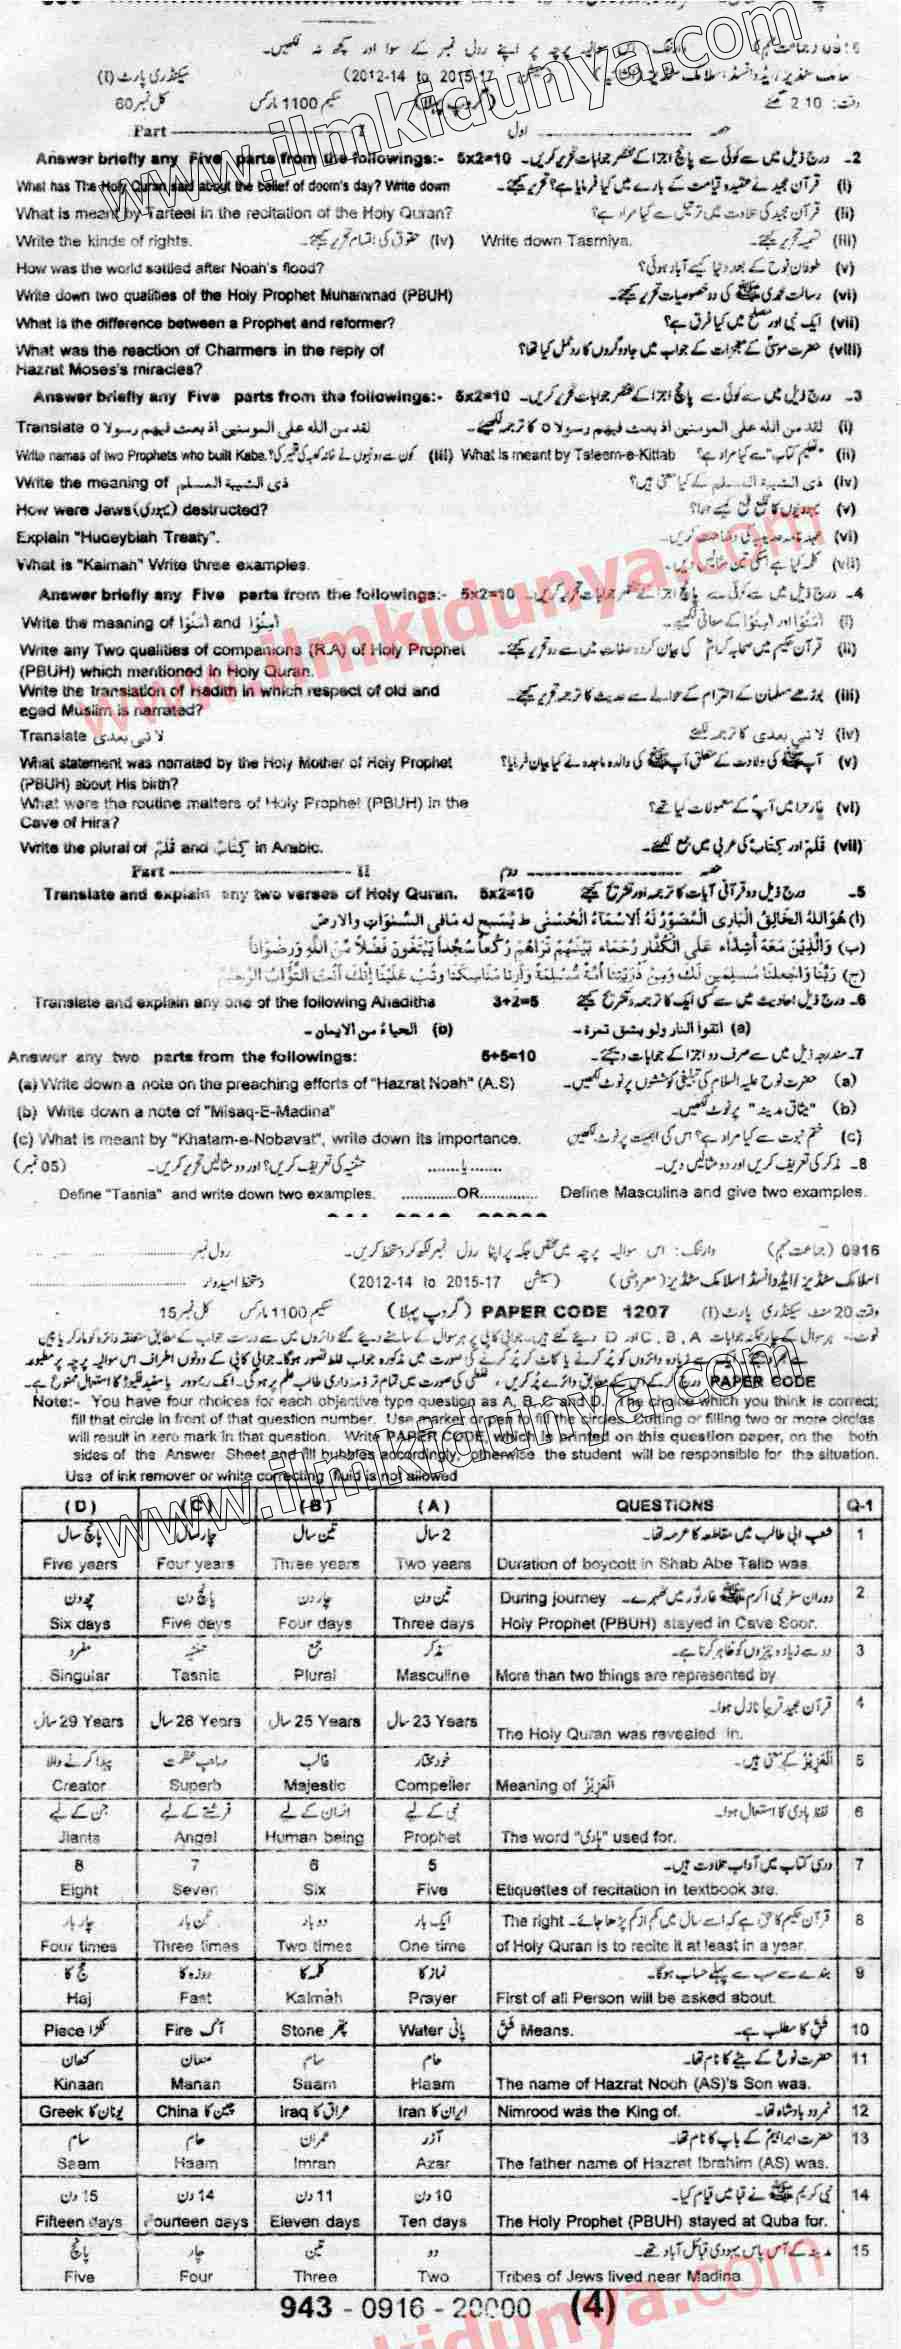 0916 (جماعت نہم) وارننگ: اس سوالیہ پرچہ پر اپنے رول نمبر کے سوا اور کچھ نہ لکھیں۔
(2012-14 to 2015-17) سیکنڈری پارٹ (I)
وقت: 2:10 گھنٹے سکیم 1100 مارکس کل نمبر 60
Part I حصہ اول
Answer briefly any Five parts from the followings:- 5x2=10 درج ذیل میں سے کوئی سے پانچ اجزا کے مختصر جوابات تحریر کریں۔ -2
What has The Holy Quran said about the belief of doom's day? Write down قرآن مجید نے عقیدہ قیامت کے بارے میں کیا فرمایا ہے؟ تحریر کیجئے۔ (i)
What is meant by Tarteel in the recitation of the Holy Quran? قرآن مجید کی تلاوت میں ترتیل سے کیا مراد ہے؟ (ii)
Write the kinds of rights. حقوق کی اقسام تحریر کیجئے۔ (iv) Write down Tasmiya. تسمیہ تحریر کیجئے۔ (iii)
How was the world settled after Noah's flood? طوفان نوح کے بعد دنیا کیسے آباد ہوئی؟ (v)
Write down two qualities of the Holy Prophet Muhammad (PBUH) رسالت محمدی ﷺ کی دو خصوصیات تحریر کیجئے۔ (vi)
What is the difference between a Prophet and reformer? ایک نبی اور مصلح میں کیا فرق ہے؟ (vii)
What was the reaction of Charmers in the reply of حضرت موسیٰ کے معجزات کے جواب میں جادوگروں کا ردعمل کیا تھا؟ (viii)
Hazrat Moses's miracles?
Answer briefly any Five parts from the followings:- 5x2=10 درج ذیل میں سے کوئی سے پانچ اجزا کے مختصر جوابات تحریر کریں۔ -3
Translate لقد من الله على المومنين اذ بعث فيهم رسولا o لقد من الله على المومنين اذ بعث فيهم رسولا o کا ترجمہ لکھیئے۔ (i)
Write names of two Prophets who built Kabe. کون سے دو نبیوں نے خانہ کعبہ کی تعمیر کی؟ (iii) What is meant by Taleem-e-Kittab "تعلیم کتاب" سے کیا مراد ہے؟ (ii)
Write the meaning of ذى الشيبة المسلم ذى الشيبة المسلم کے کیا معنی ہیں؟ (iv)
How were Jews (یہودی) destructed? یہودیوں کا قلع قمع کیسے ہوا؟ (v)
Explain "Hudeybiah Treaty". عہد نامہ حدیبیہ کی وضاحت کریں۔ (vi)
What is "Kalmah" Write three examples. کلمہ کیا ہے اسکی تین مثالیں دیں۔ (vii)
Answer briefly any Five parts from the followings:- 5x2=10 درج ذیل میں سے کوئی سے پانچ اجزا کے مختصر جوابات تحریر کریں۔ -4
Write the meaning of اٰمَنُوْا and اٰمِنُوْا اٰمَنُوْا اور اٰمِنُوْا کے معانی لکھیے۔ (i)
Write any Two qualities of companions (R.A) of Holy Prophet قرآن حکیم میں صحابہ کرام کی بیان کردہ صفات میں سے دو تحریر کیجئے۔ (ii)
(PBUH) which mentioned in Holy Quran.
Write the translation of Hadith in which respect of old and بوڑھے مسلمان کے احترام کے حوالے سے حدیث کا ترجمہ تحریر کیجئے۔ (iii)
aged Muslim is narrated?
Translate لا نبى بعدى لا نبى بعدى کا ترجمہ لکھئے (iv)
What statement was narrated by the Holy Mother of Holy Prophet آپ ﷺ کی ولادت کے متعلق آپ ﷺ کی والدہ ماجدہ نے کیا بیان فرمایا؟ (v)
(PBUH) about His birth?
What were the routine matters of Holy Prophet (PBUH) in the غار حرا میں آپ کے معمولات کیا تھے؟ (vi)
Cave of Hira?
Write the plural of قلم and كتاب in Arabic. قلم اور كتاب کی عربی میں جمع لکھئے۔ (vii)
Part II حصہ دوم
Translate and explain any two verses of Holy Quran. 5x2=10 درج ذیل دو قرآنی آیات کا ترجمہ اور تشریح کیجئے -5
(ا) هُوَ اللهُ الْخَالِقُ الْبَارِئُ الْمُصَوِّرُ لَهُ الْاَسْمَآءُ الْحُسْنٰى ط يُسَبِّحُ لَهُ مَا فِى السَّمٰوٰتِ وَالْاَرْضِ
(ب) وَالَّذِينَ مَعَهُ أَشِدَّاءُ عَلَى الْكُفَّارِ رُحَمَاءُ بَيْنَهُمْ تَرَاهُمْ رُكَّعاً سُجَّداً يَبْتَغُونَ فَضْلاً مِّنَ اللَّهِ وَرِضْوَاناً
(ج) رَبَّنَا وَاجْعَلْنَا مُسْلِمَيْنِ لَكَ وَمِن ذُرِّيَّتِنَا أُمَّةً مُّسْلِمَةً لَّكَ وَأَرِنَا مَنَاسِكَنَا وَتُبْ عَلَيْنَا إِنَّكَ أَنتَ التَّوَّابُ الرَّحِيمُ
Translate and explain any one of the following Ahaditha 3+2=5 درج ذیل احادیث میں سے کسی ایک کا ترجمہ و تشریح کیجئے -6
(a) اتقوا النار ولو بشق تمرة۔ (b) الحياء من الايمان۔
Answer any two parts from the followings: 5+5=10 مندرجہ ذیل میں سے صرف دو اجزا کے جوابات دیجئے۔ -7
(a) Write down a note on the preaching efforts of "Hazrat Noah" (A.S) حضرت نوح علیہ السلام کی تبلیغی کوششوں پر نوٹ لکھیں۔ (a)
(b) Write down a note of "Misaq-E-Madina" "میثاق مدینہ" پر نوٹ لکھیں۔ (b)
(c) What is meant by "Khatam-e-Nobavat", write down its importance. ختم نبوت سے کیا مراد ہے؟ اس کی اہمیت پر نوٹ لکھیں (c)
(05 نمبر) تثنیہ کی تعریف کریں؟ اور دو مثالیں تحریر کریں۔ ........یا........ مذکر کی تعریف کریں اور دو مثالیں دیں۔ -8
Define "Tasnia" and write down two examples. .............OR............. Define Masculine and give two examples.
0916 (جماعت نہم) وارننگ: اس سوالیہ پرچہ میں مختص جگہ پر اپنا رول نمبر لکھ کر دستخط کریں۔ رول نمبر
اسلامک سٹڈیز / ایڈوانسڈ اسلامک سٹڈیز (معروضی) سیشن (2012-14 to 2015-17) دستخط امیدوار
وقت 20 منٹ سیکنڈری پارٹ (I) PAPER CODE 1207 (گروپ پہلا) سکیم 1100 مارکس کل نمبر 15
PAPER CODE
Note:- You have four choices for each objective type question as A, B, C and D. The choice which you think is correct;
fill that circle in front of that question number. Use marker or pen to fill the circles. Cutting or filling two or more circles
will result in zero mark in that question. Write PAPER CODE, which is printed on this question paper, on the both
sides of the Answer Sheet and fill bubbles accordingly, otherwise the student will be responsible for the situation.
Use of ink remover or white correcting fluid is not allowed
(D) (C) (B) (A) QUESTIONS Q-1
پانچ سال چار سال تین سال 2 سال شعب ابی طالب میں مقاطعہ کا عرصہ تھا۔ 1
Five years Four years Three years Two years Duration of boycott in Shab Abe Talib was.
چھ دن پانچ دن چار دن تین دن During journey دوران سفر نبی اکرم ﷺ غار ثور میں ٹھہرے۔ 2
Six days Five days Four days Three days Holy Prophet (PBUH) stayed in Cave Soor.
مفرد تثنیہ جمع مذکر دو سے زیادہ چیزوں کو ظاہر کرتا ہے۔ 3
Singular Tasnia Plural Masculine More than two things are represented by
29 Years سال 26 Years سال 25 Years سال 23 Years سال قرآن مجید تقریبا نازل ہوا۔ 4
The Holy Quran was revealed in.
پیدا کرنے والا صاحب عظمت غالب خود مختار اَلْعَزِيْزُ کے معنی ہیں۔ 5
Creator Superb Majestic Compeller Meaning of اَلْعَزِيْزُ
جن کے لیے فرشتے کے لیے انسان کے لیے نبی کے لیے لفظ ہادی کا استعمال ہوا۔ 6
Jiants Angel Human being Prophet The word "ہادی" used for.
8 7 6 5 درسی کتاب میں آداب تلاوت ہیں۔ 7
Eight Seven Six Five Etiquettes of recitation in textbook are.
چار بار تین بار دو بار ایک بار The right قرآن حکیم کا حق ہے کہ اسے سال میں کم از کم پڑھا جائے۔ 8
Four times Three times Two times One time of Holy Quran is to recite it at least in a year.
حج کا روزہ کا کلمہ کا نماز کا بندے سے سب سے پہلے حساب ہوگا۔ 9
Haj Fast Kalmah Prayer First of all Person will be asked about.
Piece ٹکڑا Fire آگ Stone پتھر Water پانی شق Means. شق کا مطلب ہے۔ 10
کنعان منعان سام حام حضرت نوح کے بیٹے کا نام تھا۔ 11
Kinaan Manan Saam Haam The name of Hazrat Nooh (AS)'s Son was.
Greek یونان کا China چین کا Iraq عراق کا Iran ایران کا Nimrood was the King of. نمرود بادشاہ تھا۔ 12
سام حام عمران آزر حضرت ابراہیم کے باپ کا نام تھا۔ 13
Saam Haam Imran Azar The father name of Hazrat Ibrahim (AS) was.
15 دن 14 دن 11 دن 10 دن نبی کریم ﷺ نے قبا میں قیام کیا۔ 14
Fifteen days Fourteen days Eleven days Ten days The Holy Prophet (PBUH) stayed at Quba for.
پانچ چار تین دو مدینہ کے آس پاس یہودی قبائل آباد تھے۔ 15
Five Four Three Two Tribes of Jews lived near Madina.
943 - 0916 - 20000 (4)
www.ilmkidunya.com
www.ilmkidunya.com
www.ilmkidunya.com